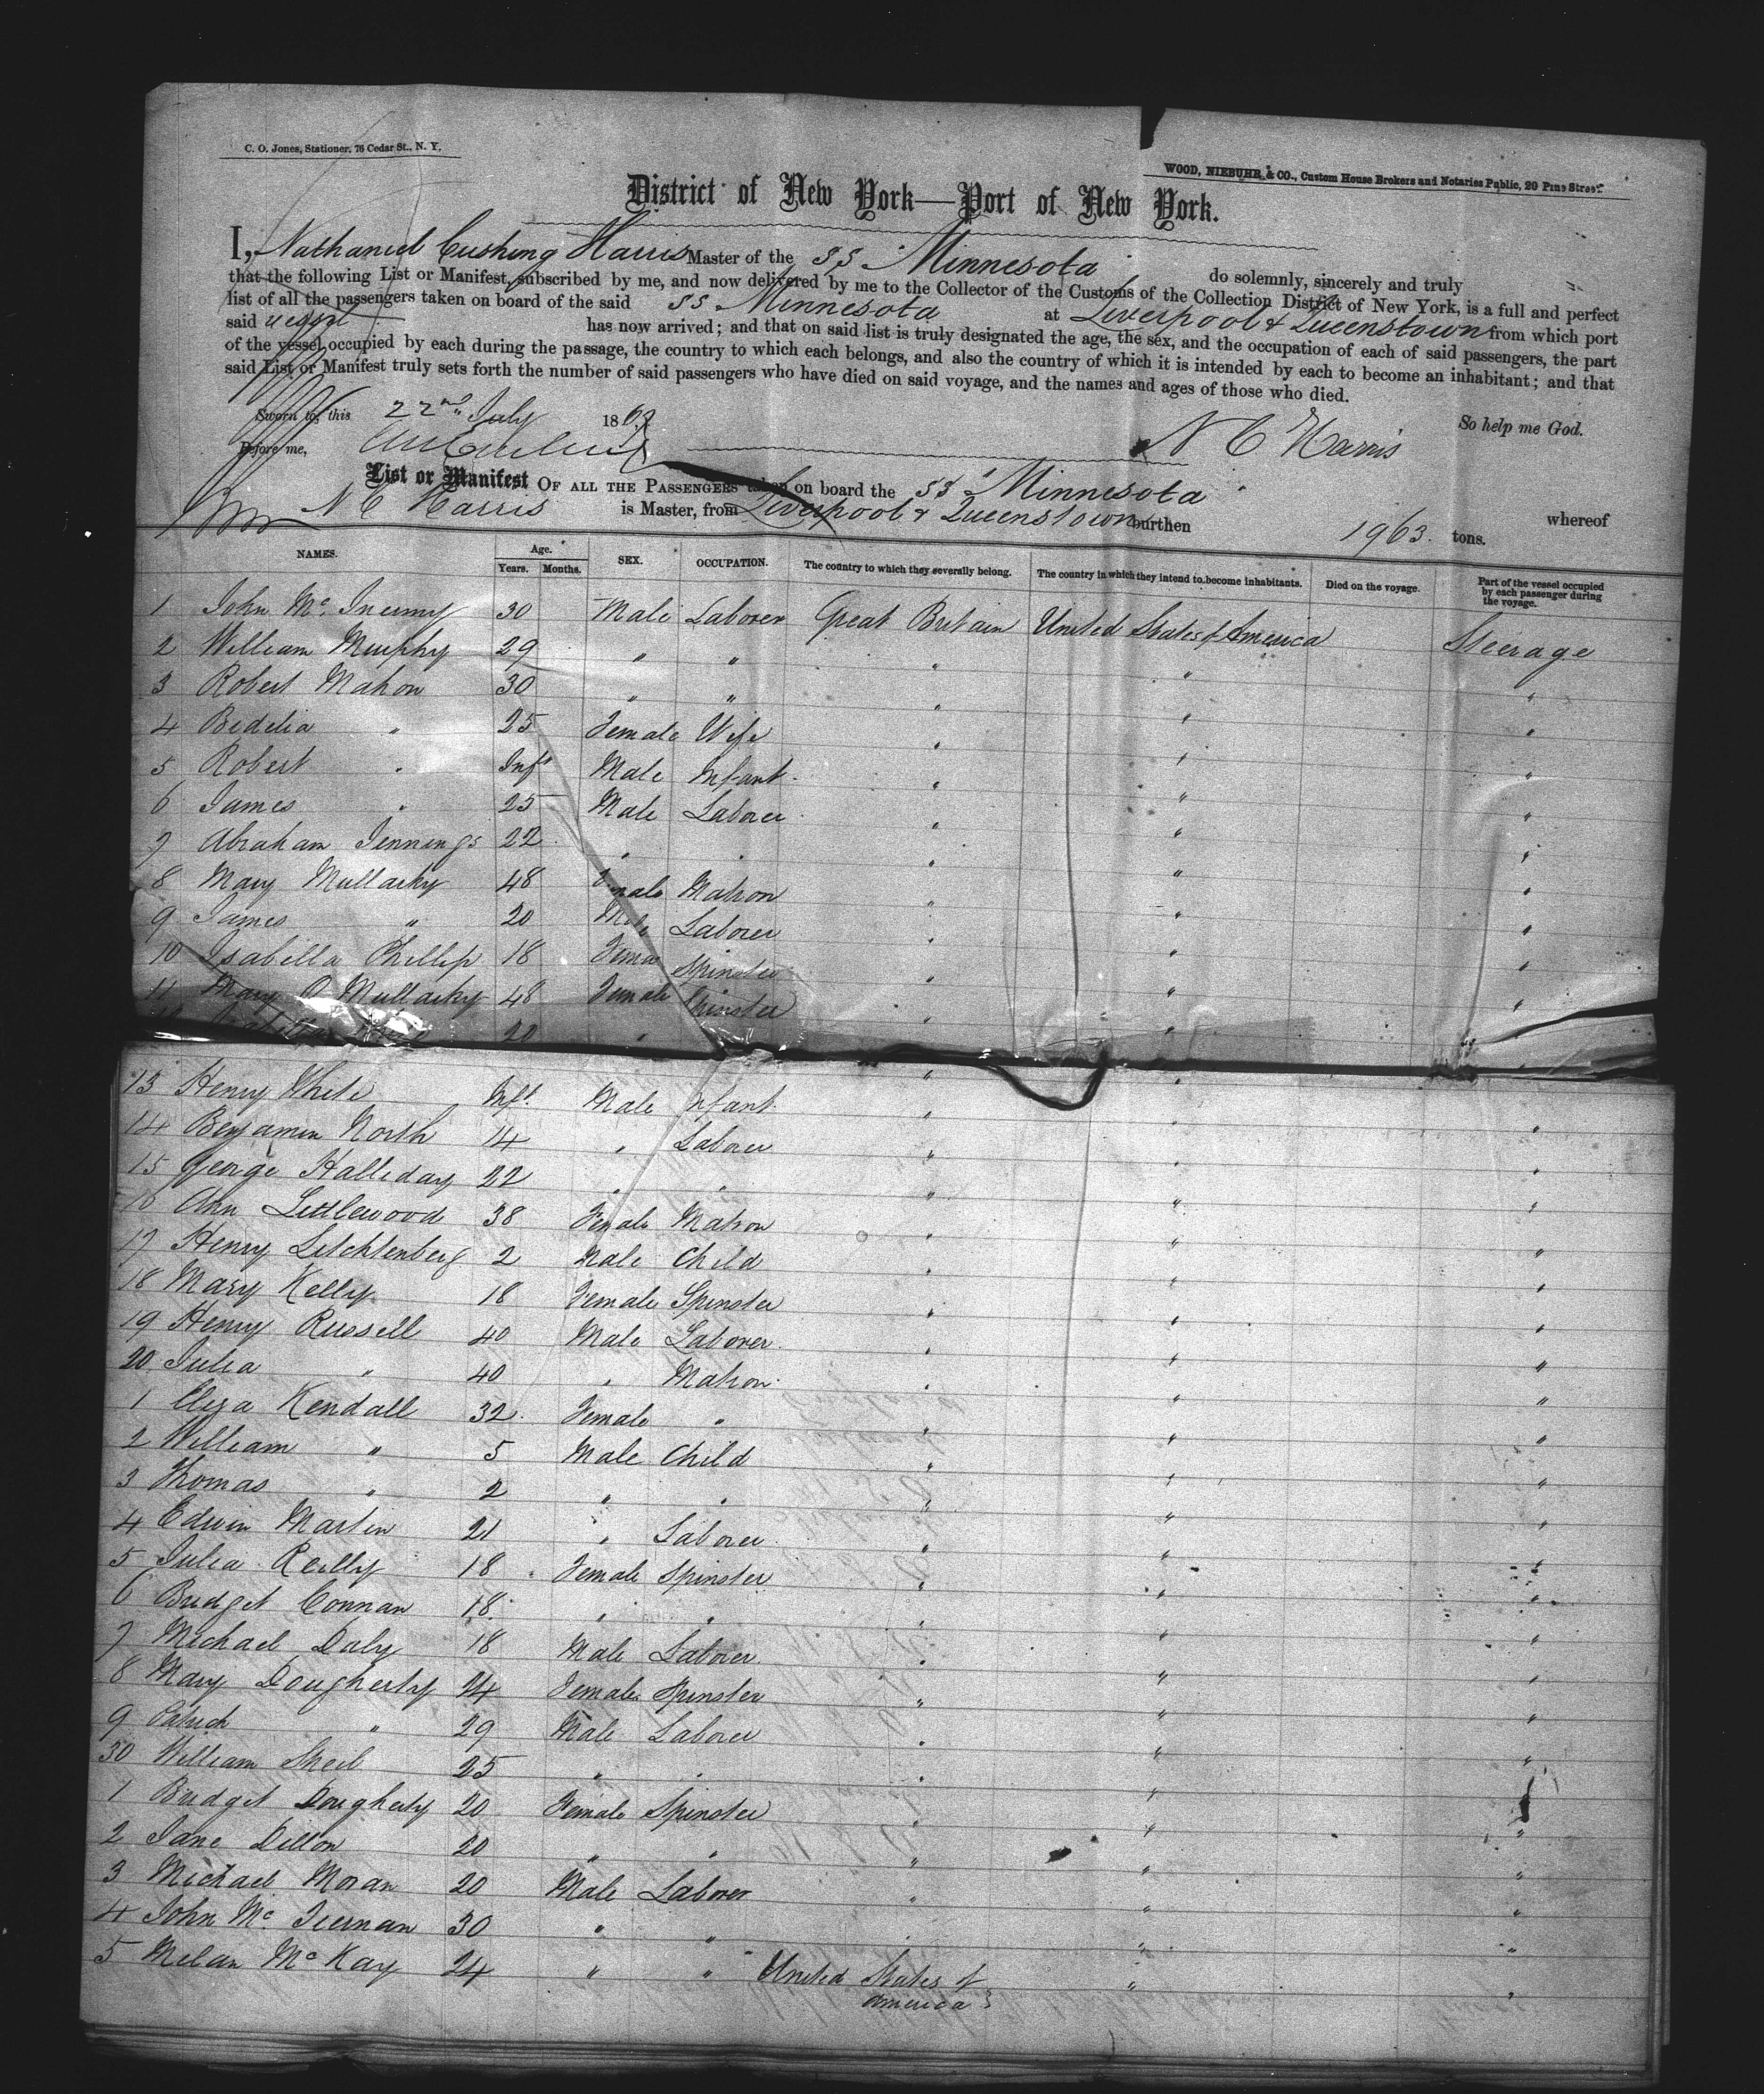 C. O. Jones, Stationer, 76 Cedar St., N. Y.
WOOD, NIEBUHR & CO., Custom House Brokers and Notaries Public, 20 Pine Street.
District of New York—Port of New York.
I, Nathaniel Cushing Harris Master of the SS Minnesota do solemnly, sincerely and truly
that the following List or Manifest, subscribed by me, and now delivered by me to the Collector of the Customs of the Collection District of New York, is a full and perfect
list of all the passengers taken on board of the said SS Minnesota at Liverpool & Queenstown from which port
said vessel has now arrived; and that on said list is truly designated the age, the sex, and the occupation of each of said passengers, the part
of the vessel occupied by each during the passage, the country to which each belongs, and also the country of which it is intended by each to become an inhabitant; and that
said List or Manifest truly sets forth the number of said passengers who have died on said voyage, and the names and ages of those who died.
Sworn to, this 22nd July 186 So help me God.
Before me, N C Harris
List or Manifest OF ALL THE PASSENGERS taken on board the SS Minnesota whereof
N C Harris is Master, from Liverpool & Queenstown burthen 1963 tons.
NAMES. Age. Years. Months. SEX. OCCUPATION. The country to which they severally belong. The country in which they intend to become inhabitants. Died on the voyage. Part of the vessel occupied by each passenger during the voyage.
1 John Mc Inerny 30 Male Laborer Great Britain United States of America Steerage
2 William Murphy 29 " " " " "
3 Robert Mahon 30 " " " " "
4 Bedelia " 25 Female Wife " " "
5 Robert " Inft Male Infant " " "
6 James " 25 Male Laborer " " "
7 Abraham Jennings 22 " " " " "
8 Mary Mullarky 48 Female Matron " " "
9 James " 20 Male Laborer " " "
10 Isabella Phillip 18 Female Spinster " " "
11 Mary Mullarky 48 Female Spinster " " "
20 " " "
13 Henry White Inft. Male Infant " " "
14 Benjamin North 14 " Laborer " " "
15 George Halliday 22 " " " " "
16 Ann Littlewood 38 Female Matron " " "
17 Henry Litchtenberg 2 Male Child " " "
18 Mary Kelly 18 Female Spinster " " "
19 Henry Russell 40 Male Laborer " " "
20 Julia " 40 " Matron " " "
1 Eliza Kendall 32 Female " " " "
2 William " 5 Male Child " " "
3 Thomas " 2 " " " " "
4 Edwin Martin 21 " Laborer " " "
5 Julia Reilly 18 Female Spinster " " "
6 Bridget Connan 18 " " " " "
7 Michael Daly 18 Male Laborer " " "
8 Mary Dougherty 24 Female Spinster " " "
9 Patrick " 29 Male Laborer " " "
30 William Sheil 25 " " " " "
1 Bridget Dougherty 20 Female Spinster " " "
2 Jane Dillon 20 " " " " "
3 Michael Moran 20 Male Laborer " " "
4 John Mc Tiernan 30 " " " " "
5 Milan McKay 24 " " United States of America " "